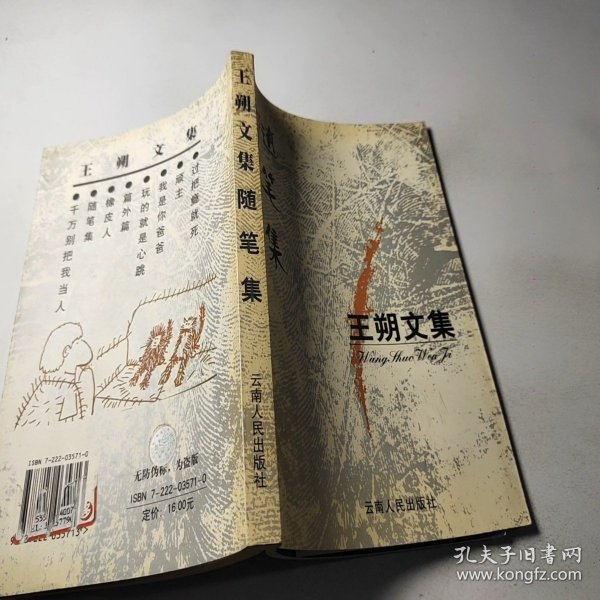 王朔文集
过把瘾就死
顽主
我是你爸爸
玩的就是心跳
篇外篇
橡皮人
随笔集
千万别把我当人
ISBN 7-222-03571-0
无防伪标，为盗版
ISBN 7-222-03571-0
定价：16.00元
王朔文集随笔集
云南人民出版社
随笔集
王朔文集
Wang Shuo Wen Ji
云南人民出版社
孔夫子旧书网
www.kongfz.com